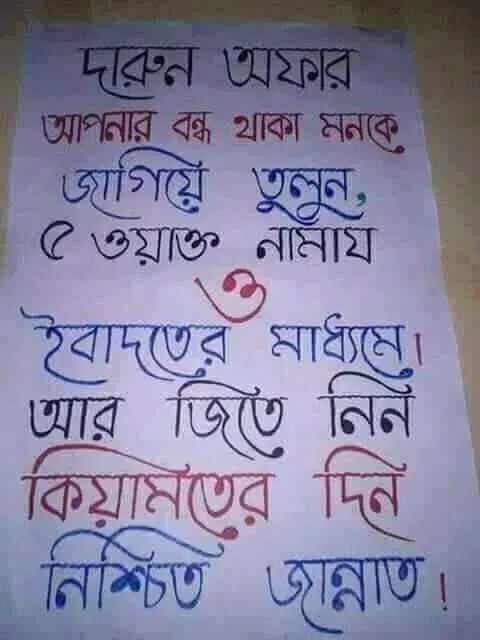 দারুন অফার
আপনার বন্ধ থাকা মনকে
জাগিয়ে তুলুন,
৫ ওয়াক্ত নামায
ও
ইবাদতের মাধ্যমে।
আর জিতে নিন
কিয়ামতের দিন
নিশ্চিত জান্নাত!